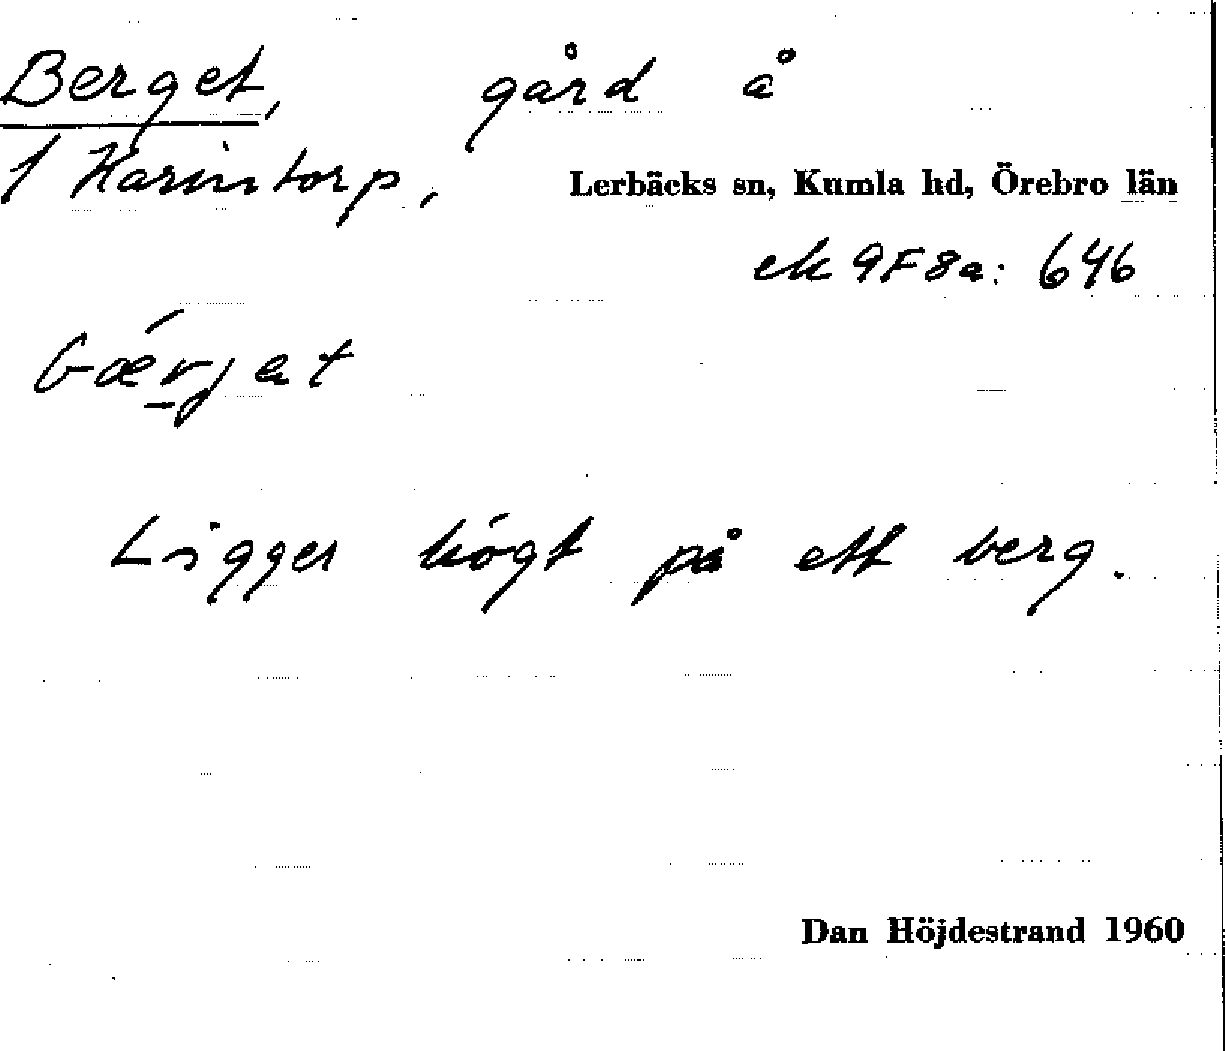 Berget, gård å
1 Karinstorp,
Lerbäcks sn, Kumla hd, Örebro län
ek 9F8a: 646
bærjet
Ligger högt på ett berg.
Dan Höjdestrand 1960